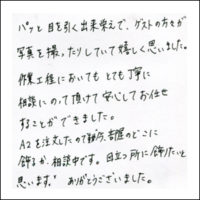 パッと目を引く出来栄えで、ゲストの方々が
写真を撮ったりしていて嬉しく思いました。
作業工程においてもとても丁寧に
相談にのって頂けて安心してお任せ
することができました。
A2を注文したので額縁、部屋のどこに
飾るか、相談中です。目立つ所に飾りたいと
思います。" ありがとうございました。